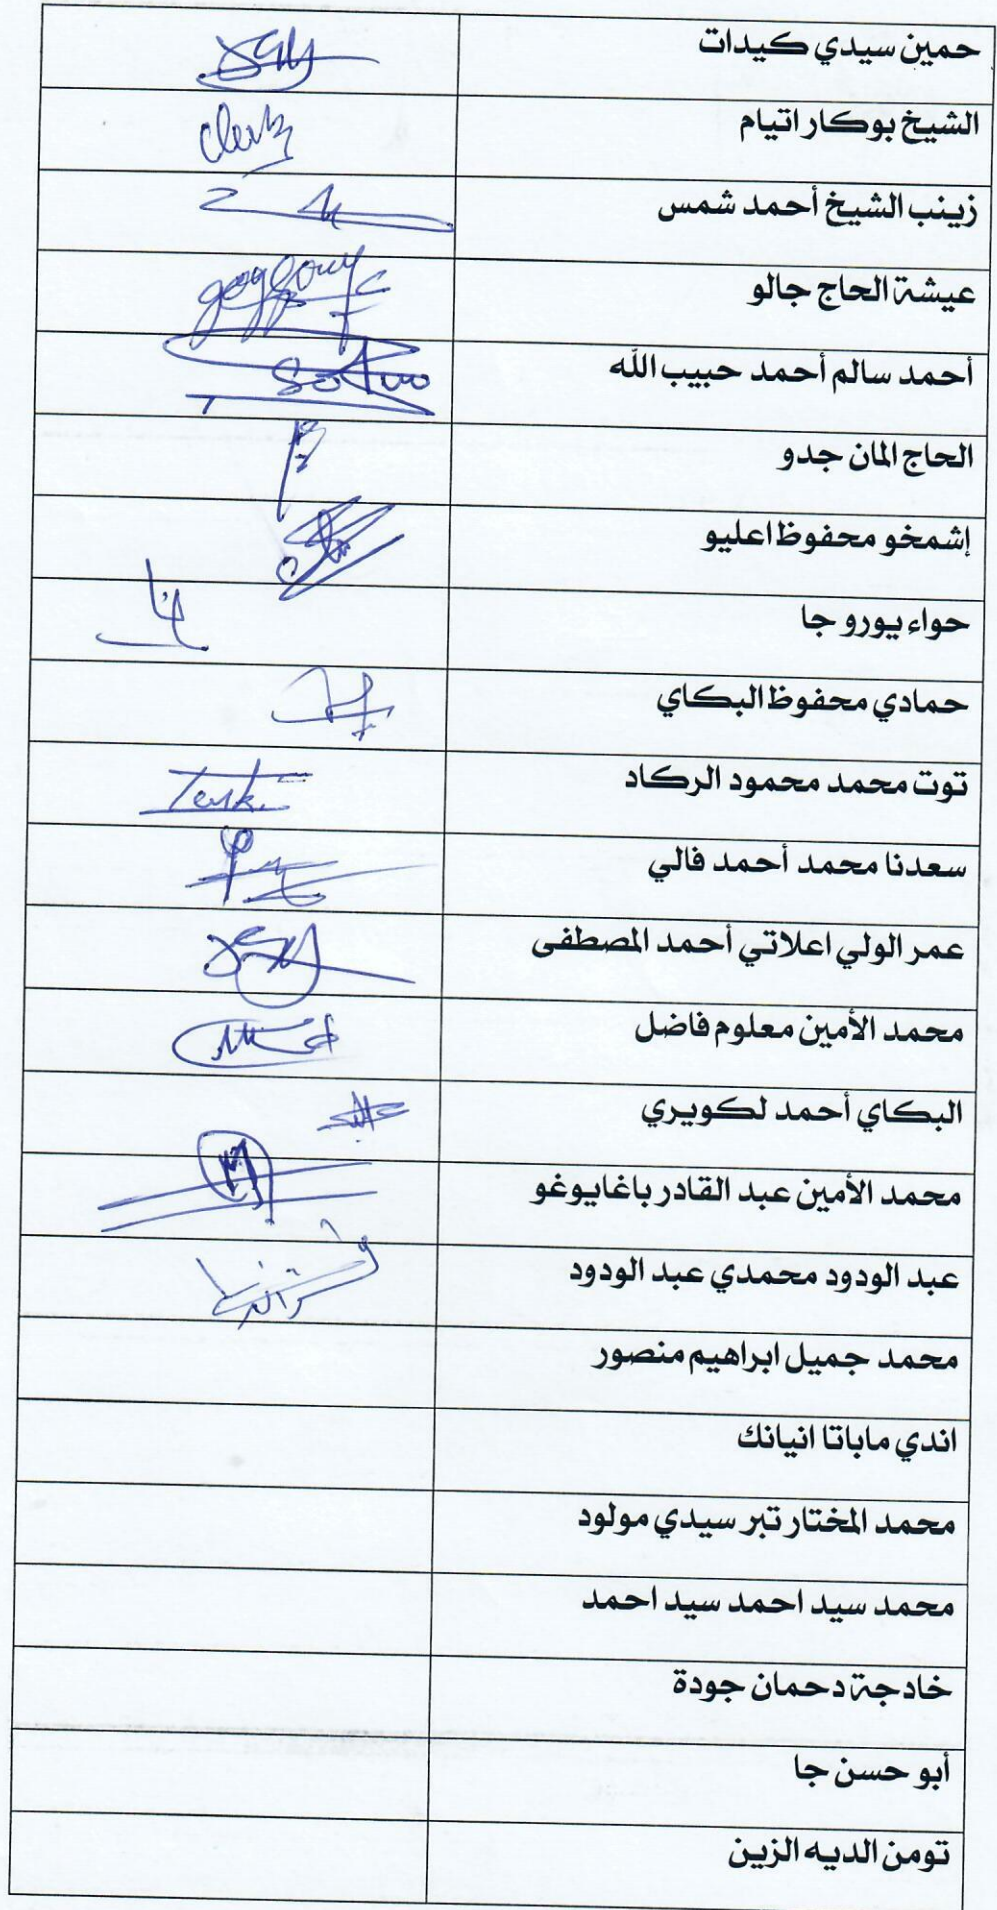 حمين سيدي كيدات
الشيخ بوكار اتيام
زينب الشيخ أحمد شمس
عيشة الحاج جالو
أحمد سالم أحمد حبيب الله
الحاج المان جدو
إشمخو محفوظ اعليو
حواء يورو جا
حمادي محفوظ البكاي
توت محمد محمود الركاد
سعدنا محمد أحمد فالي
عمر الولي اعلاتي أحمد المصطفى
محمد الأمين معلوم فاضل
البكاي أحمد لكويري
محمد الأمين عبد القادر باغايوغو
عبد الودود محمدي عبد الودود
محمد جميل ابراهيم منصور
اندي ماباتا انيانك
محمد المختار تبر سيدي مولود
محمد سيد احمد سيد احمد
خادجة دحمان جودة
أبو حسن جا
تومن الديه الزين